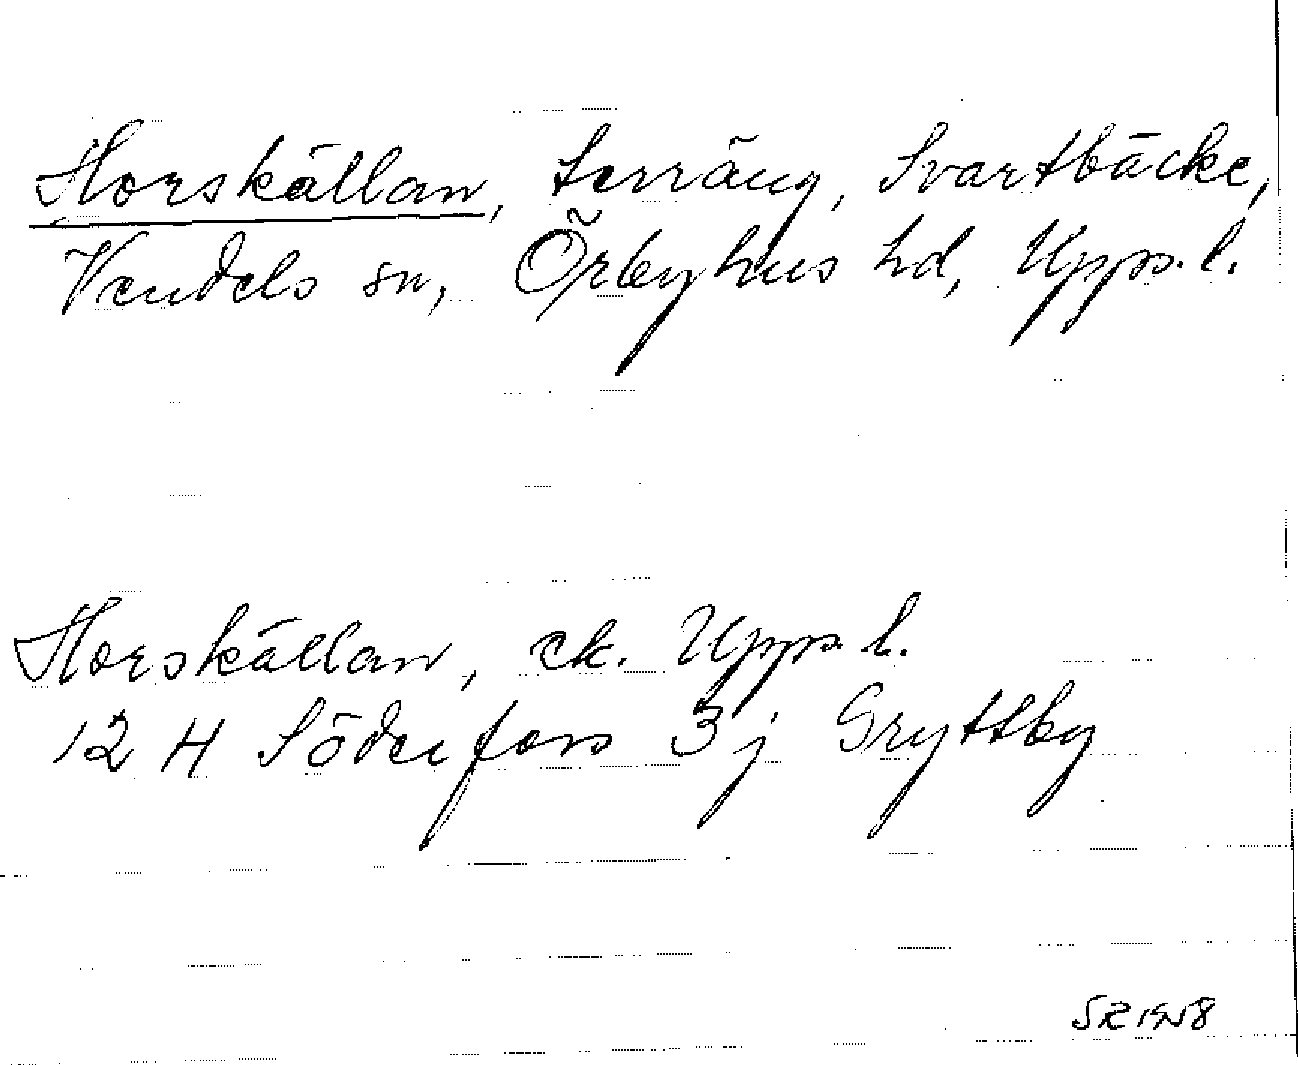 Horskällan, terräng, Svartbäcke,
Vendels sn, Örbyhus hd, Upps. l.
Horskällan, ek. Upps. l.
12 H Söderfors 3 j Gryttby
SR 1958